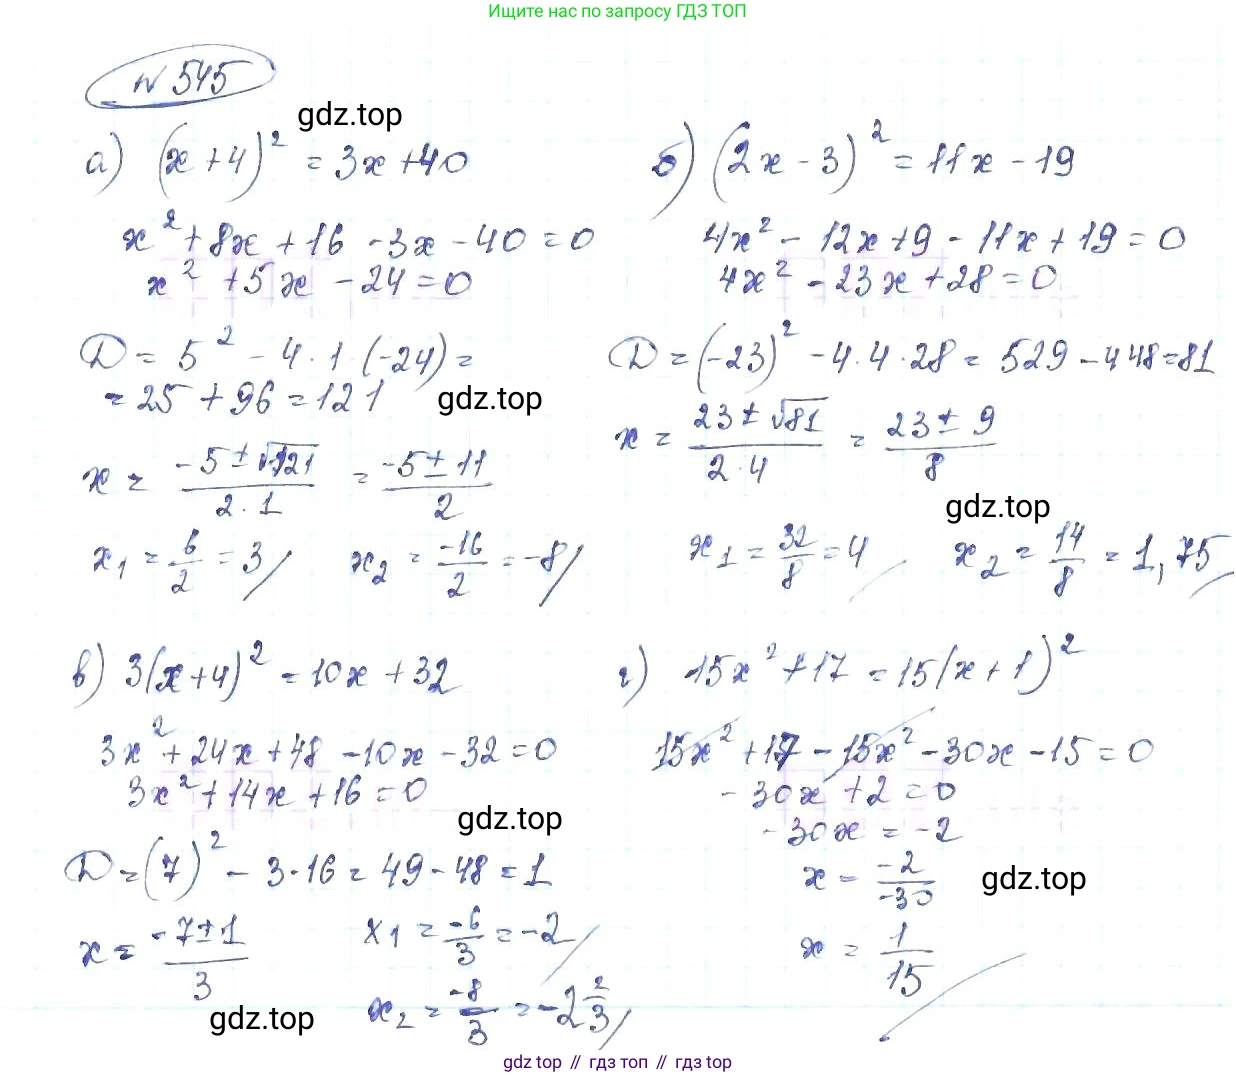 Ищите нас по запросу ГДЗ ТОП
№ 545
gdz.top
а) (x+4)² = 3x+40
x² + 8x + 16 - 3x - 40 = 0
x² + 5x - 24 = 0
D = 5² - 4·1·(-24) =
= 25 + 96 = 121
gdz.top
x = (-5 ± √121)/(2·1) = (-5 ± 11)/2
x₁ = 6/2 = 3 x₂ = -16/2 = -8
б) (2x - 3)² = 11x - 19
4x² - 12x + 9 - 11x + 19 = 0
4x² - 23x + 28 = 0
D = (-23)² - 4·4·28 = 529 - 448 = 81
x = (23 ± √81)/(2·4) = (23 ± 9)/8
gdz.top
x₁ = 32/8 = 4 x₂ = 14/8 = 1,75
в) 3(x+4)² = 10x + 32
3x² + 24x + 48 - 10x - 32 = 0
3x² + 14x + 16 = 0
gdz.top
D = (7)² - 3·16 = 49 - 48 = 1
x = (-7 ± 1)/3 x₁ = -6/3 = -2
x₂ = -8/3 = -2 2/3
gdz.top
г) 15x² + 17 = 15(x+1)²
15x² + 17 - 15x² - 30x - 15 = 0
-30x + 2 = 0
-30x = -2
x = -2/-30
gdz.top
x = 1/15
gdz top // гдз топ // гдз top